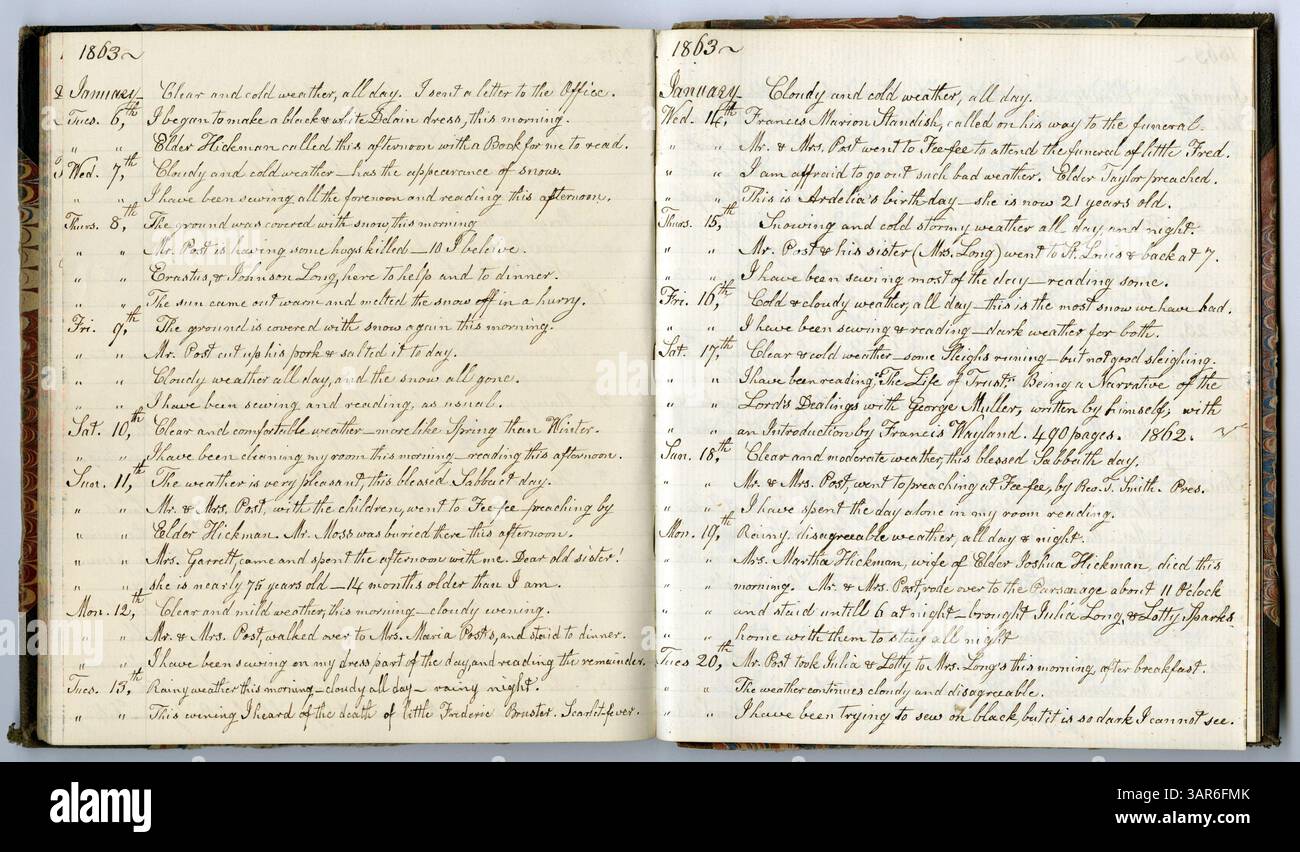 1863~
& January Clear and cold weather, all day. I sent a letter to the Office.
Tues. 6,th I began to make a black & white Delain dress, this morning.
" " Elder Hickman called this afternoon with a Book for me to read.
Wed. 7,th Cloudy and cold weather – has the appearance of snow.
" " I have been sewing all the forenoon and reading this afternoon.
Thurs. 8,th The ground was covered with snow, this morning
" " Mr. Post is having some hogs killed – 10 I beleive.
" " Erastus, & Johnson Long, here to help and to dinner.
" " The sun came out warm and melted the snow off in a hurry.
Fri. 9,th The ground is covered with snow again this morning.
" " Mr. Post cut up his pork & salted it to day.
" " Cloudy weather all day, and the snow all gone.
" " I have been sewing and reading, as usual.
Sat. 10,th Clear and comfortable weather – more like Spring than Winter.
" " I have been cleaning my room this morning – reading this afternoon.
Sun. 11,th The weather is very pleasant, this blessed Sabbact day.
" " Mr. & Mrs. Post, with the children, went to Fee-fee – preaching by
" " Elder Hickman. Mr. Moss was buried there this afternoon.
" " Mrs. Garrett, came and spent the afternoon with me. Dear old sister!
" " she is nearly 75 years old – 14 months older than I am.
Mon. 12,th Clear and mild weather, this morning – cloudy evening.
" " Mr. & Mrs. Post, walked over to Mrs. Maria Post's, and staid to dinner.
" " I have been sewing on my dress part of the day, and reading the remainder.
Tues. 13,th Rainy weather this morning – cloudy all day – rainy night.
" " This evening I heard of the death of little Frederic Bruster. Scarlit-fever.
1863~
January Cloudy and cold weather, all day.
Wed. 14,th Francis Marion Standish, called on his way to the funeral.
" " Mr. & Mrs. Post went to Fee-fee to attend the funeral of little Fred.
" " I am affraid to go out such bad weather. Elder Taylor preached.
" " This is Ardelia's birthday – she is now 21 years old.
Thurs. 15,th Snowing and cold stormy weather all day, and night.
" " Mr. Post & his sister (Mrs. Long) went to St. Louis & back at 7.
" " I have been sewing most of the day – reading some.
Fri. 16,th Cold & cloudy weather, all day – this is the most snow we have had.
" " I have been sewing & reading – dark weather for both.
Sat. 17,th Clear & cold weather – some Sleighs runing – but not good sleighing.
" " I have been reading, "The Life of Trust," Being a Narrative of the
" " Lord's Dealings with George Muller, written by himself; with
" " an Introduction by Francis Wayland. 490 pages. 1862.
Sun. 18,th Clear and moderate weather, this blessed Sabbath day.
" " Mr. & Mrs. Post, went to preaching at Fee-fee, by Rev. T. Smith. Pres.
" " I have spent the day alone in my room reading.
Mon. 19,th Rainy, disagreeable weather, all day & night.
" " Mrs. Martha Hickman, wife of Elder Joshua Hickman, died this
" " morning. Mr. & Mrs. Post, rode over to the Parsonage about 11 O'clock
" " and staid untill 6 at night – brought Julia Long, & Lotty Sparks
" " home with them to stay all night
Tues 20,th Mr. Post took Julia & Lotty to Mrs. Long's this morning, after breakfast.
" " The weather continues cloudy and disagreable.
" " I have been trying to sew on black, but it is so dark I cannot see.
alamy
Image ID: 3AR6FMK
www.alamy.com